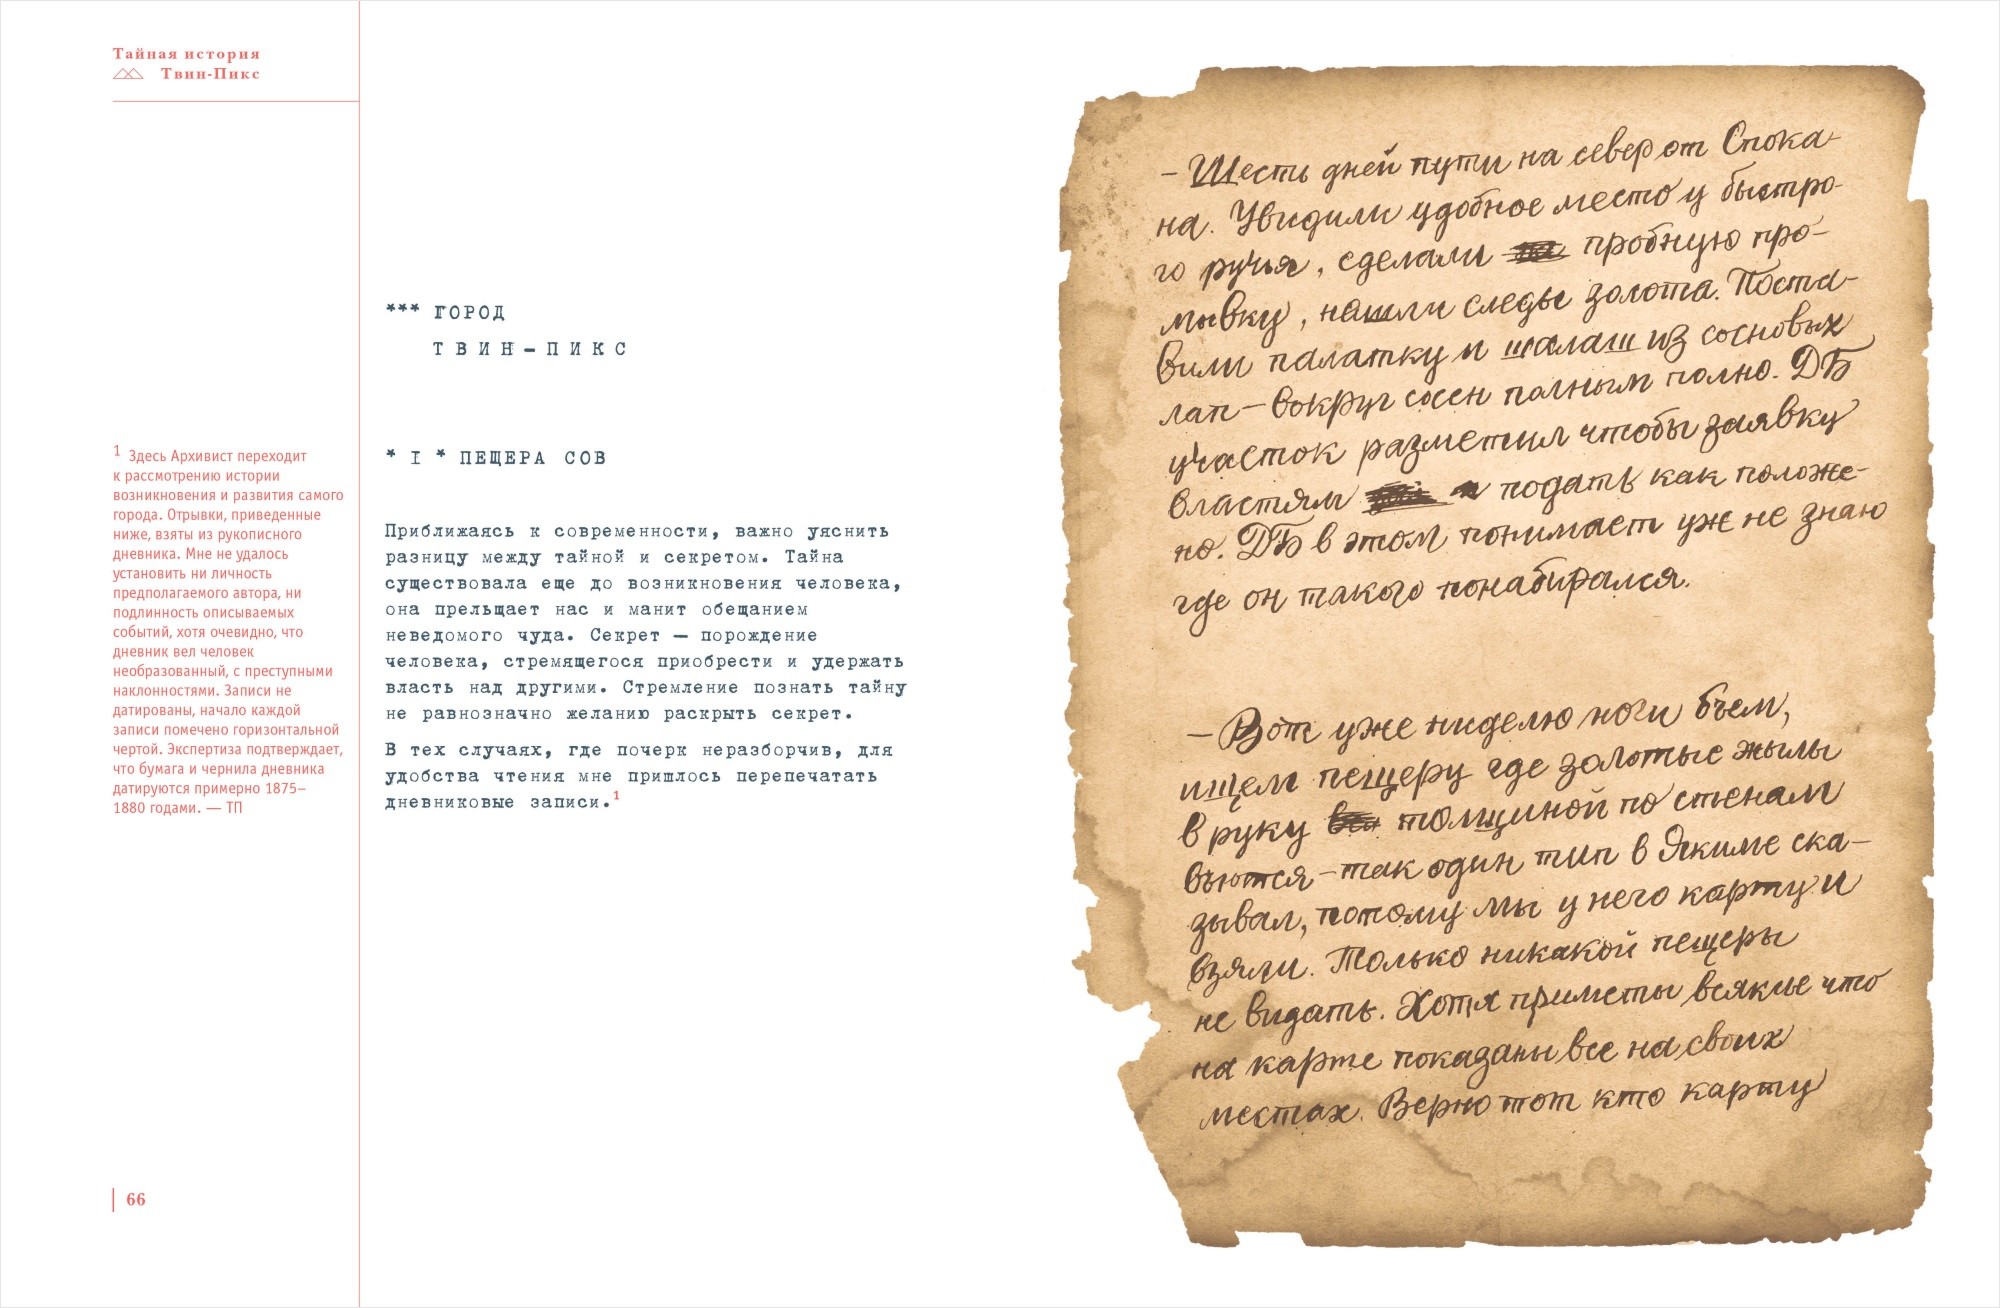 Тайная история
Твин-Пикс
*** ГОРОД
ТВИН-ПИКС
* I * ПЕЩЕРА СОВ
1 Здесь Архивист переходит
к рассмотрению истории
возникновения и развития самого
города. Отрывки, приведенные
ниже, взяты из рукописного
дневника. Мне не удалось
установить ни личность
предполагаемого автора, ни
подлинность описываемых
событий, хотя очевидно, что
дневник вел человек
необразованный, с преступными
наклонностями. Записи не
датированы, начало каждой
записи помечено горизонтальной
чертой. Экспертиза подтверждает,
что бумага и чернила дневника
датируются примерно 1875–
1880 годами. — ТП
Приближаясь к современности, важно уяснить
разницу между тайной и секретом. Тайна
существовала еще до возникновения человека,
она прельщает нас и манит обещанием
неведомого чуда. Секрет — порождение
человека, стремящегося приобрести и удержать
власть над другими. Стремление познать тайну
не равнозначно желанию раскрыть секрет.
В тех случаях, где почерк неразборчив, для
удобства чтения мне пришлось перепечатать
дневниковые записи.1
66
– Шесть дней пути на север от Спока-
на. Увидили удобное место у быстро-
го ручья, сделали пробную про-
мывку, нашли следы золота. Поста-
вили палатку и шалаш из сосновых
лап – вокруг сосен полным полно. ДБ
участок разметил чтобы заявку
властям подать как положе-
но. ДБ в этом понимает уже не знаю
где он такого понабирался.
– Вот уже ниделю ноги бьем,
ищем пещеру где золотые жылы
в руку толщиной по стенам
вьются – так один тип в Якиме ска-
зывал, потому мы у него карту и
взяли. Только никакой пещеры
не видать. Хотя приметы всякие что
на карте показаны все на своих
местах. Верно тот кто карту